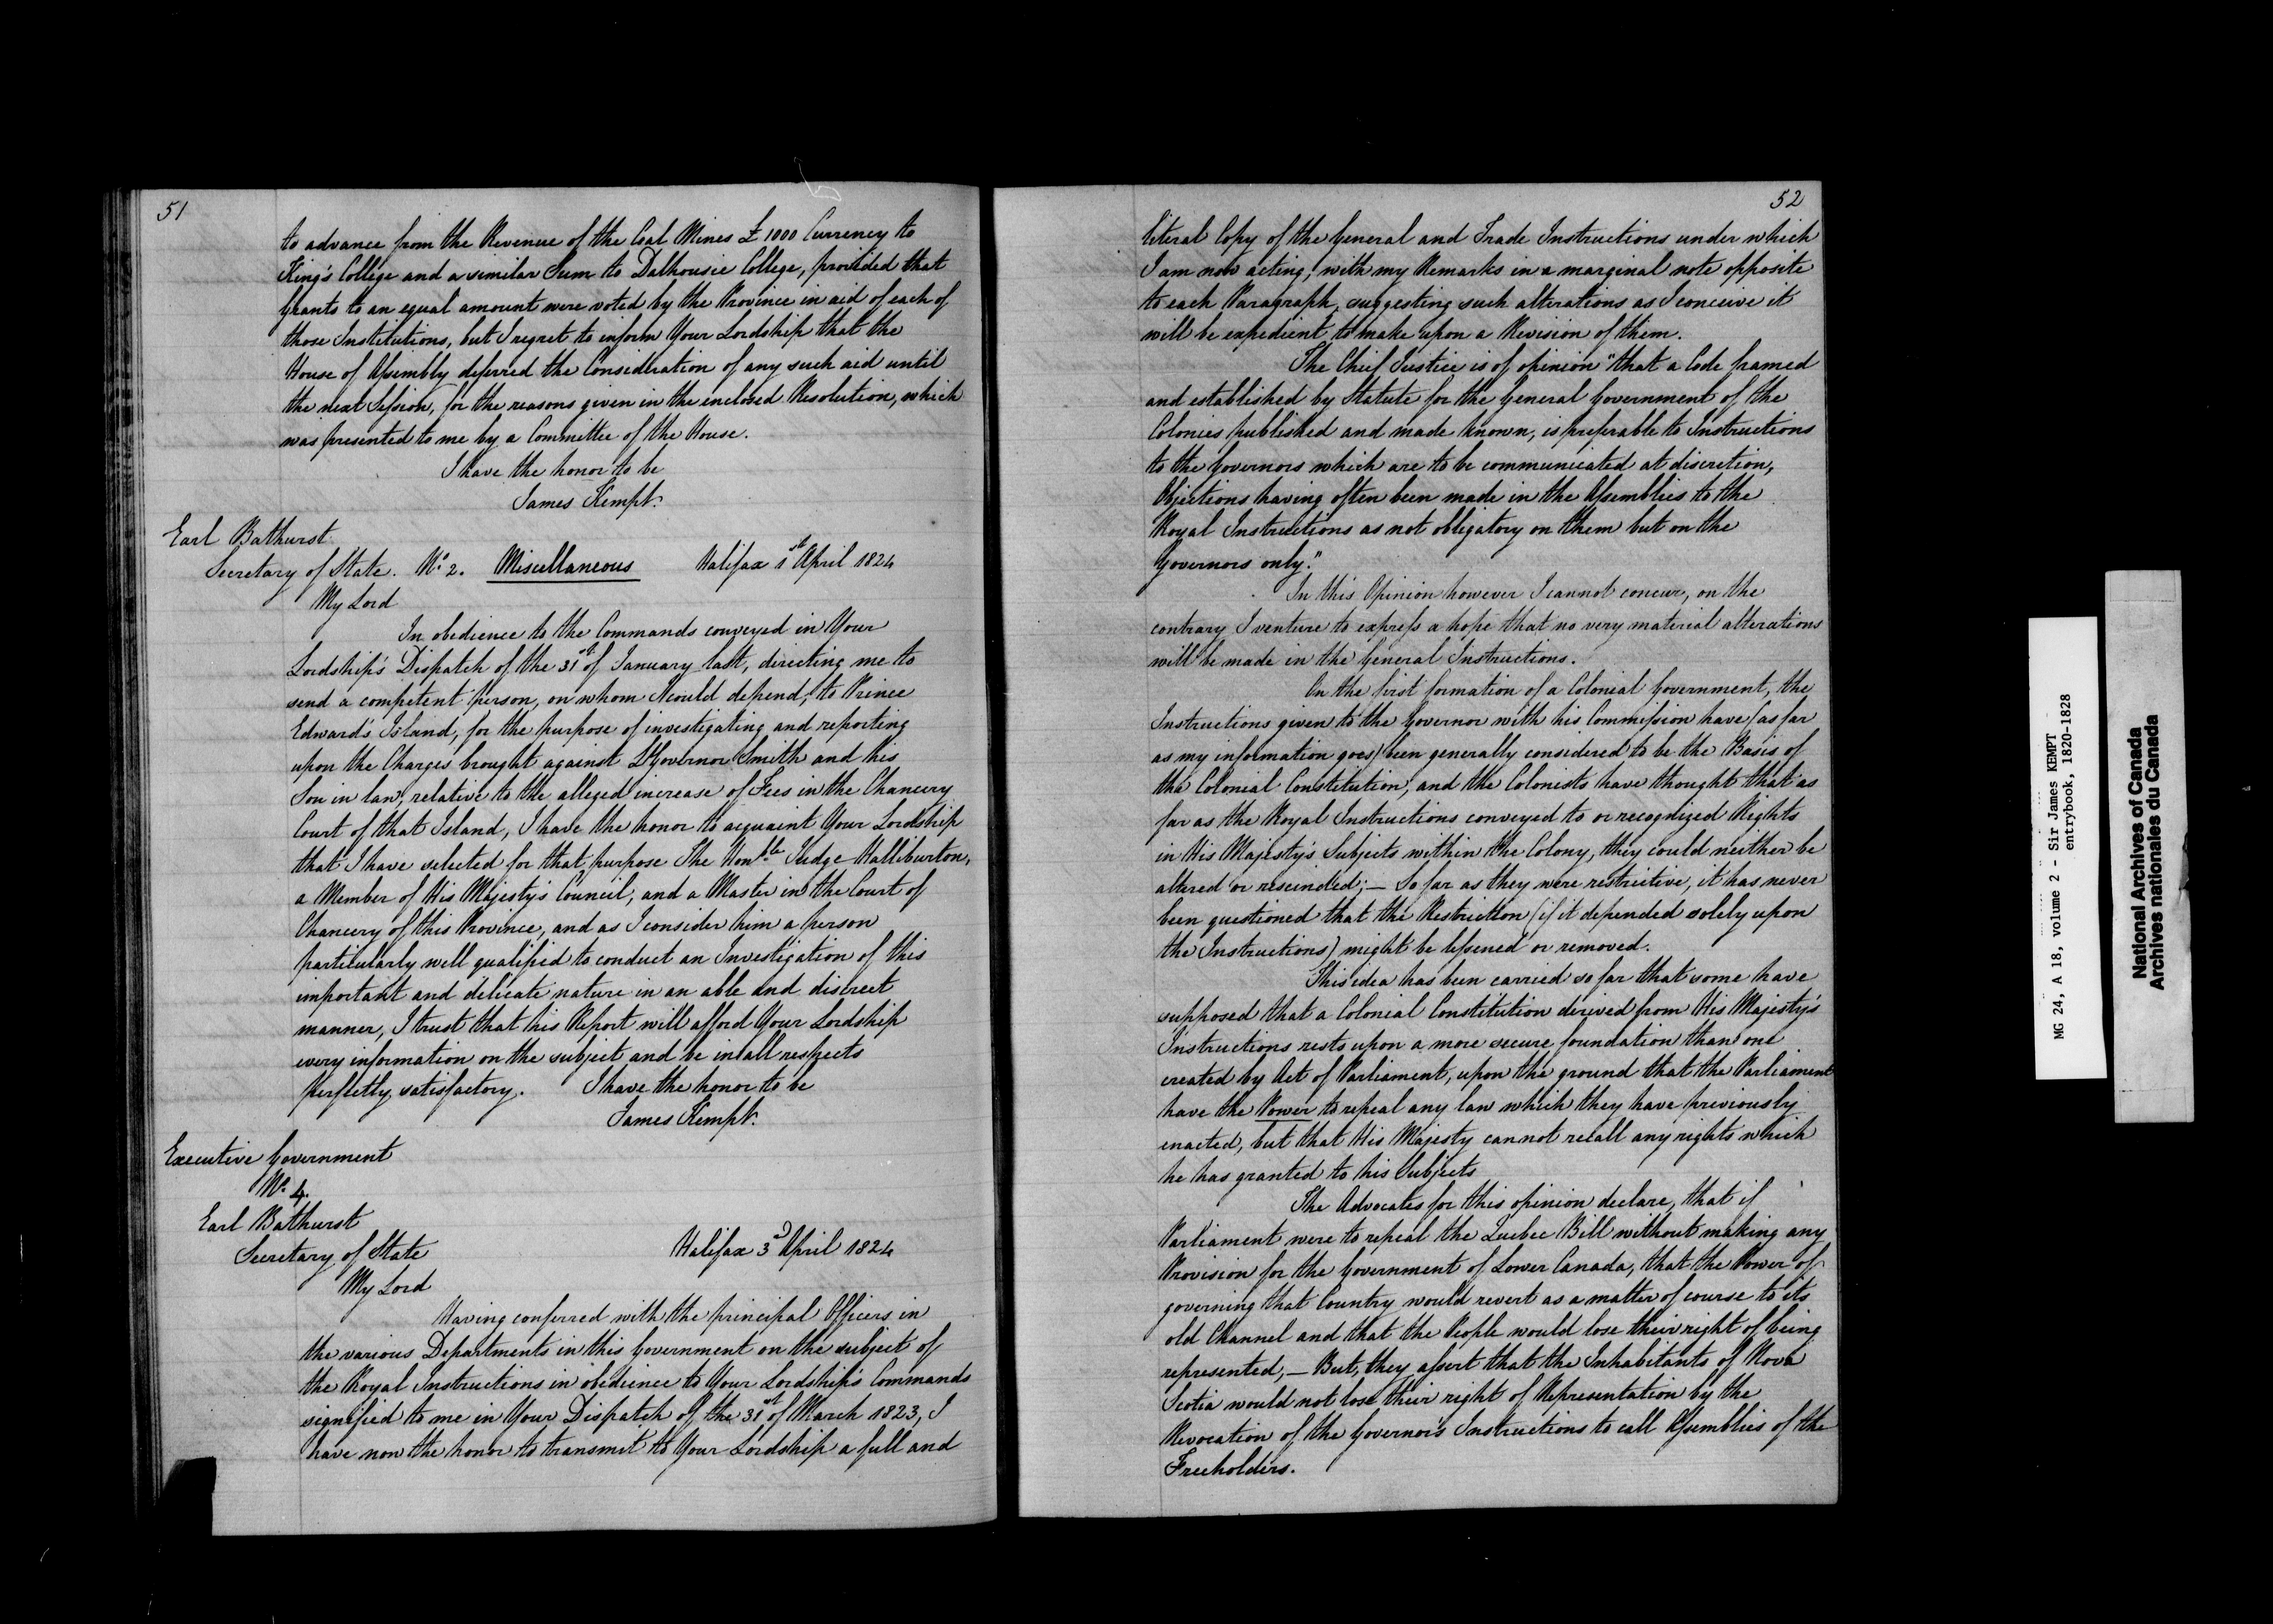 51
to advance from the Revenue of the Coal Mines £1000 Currency to
King's College and a similar Sum to Dalhousie College, provided that
Grants to an equal amount were voted by the Province in aid of each of
those Institutions, but I regret to inform Your Lordship that the
House of Assembly deferred the Consideration of any such aid until
the next Session, for the reasons given in the enclosed Resolution, which
was presented to me by a Committee of the House.
I have the honor to be
James Kempt.
Earl Bathurst
Secretary of State. No 2. Miscellaneous Halifax 1st April 1824
My Lord
In obedience to the Commands conveyed in Your
Lordship's Dispatch of the 31st of January last, directing me to
send a competent person, on whom I could depend, to Prince
Edward's Island, for the purpose of investigating and reporting
upon the Charges brought against Lt Governor Smith and his
Son in law, relative to the alleged increase of Fees in the Chancery
Court of that Island, I have the honor to acquaint Your Lordship
that I have selected for that purpose The Honble Judge Halliburton,
a Member of His Majesty's Council, and a Master in the Court of
Chancery of this Province, and as I consider him a person
particularly well qualified to conduct an Investigation of this
important and delicate nature in an able and discreet
manner, I trust that his Report will afford Your Lordship
every information on the subject and be in all respects
perfectly satisfactory. I have the honor to be
James Kempt.
Executive Government
No 4.
Earl Bathurst
Secretary of State Halifax 3d April 1824
My Lord
Having conferred with the principal Officers in
the various Departments in this Government on the subject of
the Royal Instructions in obedience to Your Lordship's Commands
signified to me in Your Dispatch of the 31st of March 1823, I
have now the honor to transmit to Your Lordship a full and
52
literal Copy of the General and Trade Instructions under which
I am now acting, with my Remarks in a marginal note opposite
to each Paragraph, suggesting such alterations as I conceive it
will be expedient to make upon a Revision of them.
The Chief Justice is of opinion "that a Code framed
and established by Statute for the General Government of the
Colonies published and made known, is preferable to Instructions
to the Governors which are to be communicated at discretion,
Objections having often been made in the Assemblies to the
Royal Instructions as not obligatory on them but on the
Governors only."
In this Opinion however I cannot concur, on the
contrary I venture to express a hope that no very material alterations
will be made in the General Instructions.
On the first formation of a Colonial Government, the
Instructions given to the Governor with his Commission have (as far
as my information goes) been generally considered to be the Basis of
the Colonial Constitution, and the Colonists have thought that as
far as the Royal Instructions conveyed to or recognized Rights
in His Majesty's Subjects within the Colony, they could neither be
altered or rescinded; — So far as they were restrictive, it has never
been questioned that the Restriction (if it depended solely upon
the Instructions) might be lessened or removed.
This idea has been carried so far that some have
supposed that a Colonial Constitution derived from His Majesty's
Instructions rests upon a more secure foundation than one
created by Act of Parliament, upon the ground that the Parliament
have the Power to repeal any law which they have previously
enacted, but that His Majesty cannot recall any rights which
he has granted to his Subjects
The Advocates for this opinion declare, that if
Parliament were to repeal the Quebec Bill without making any
Provision for the Government of Lower Canada, that the Power of
governing that Country would revert as a matter of course to its
old Channel and that the People would lose their right of being
represented, — But, they assert that the Inhabitants of Nova
Scotia would not lose their right of Representation by the
Revocation of the Governor's Instructions to call Assemblies of the
Freeholders.
MG 24, A 18, volume 2 - Sir James KEMPT
entrybook, 1820-1828
National Archives of Canada
Archives nationales du Canada